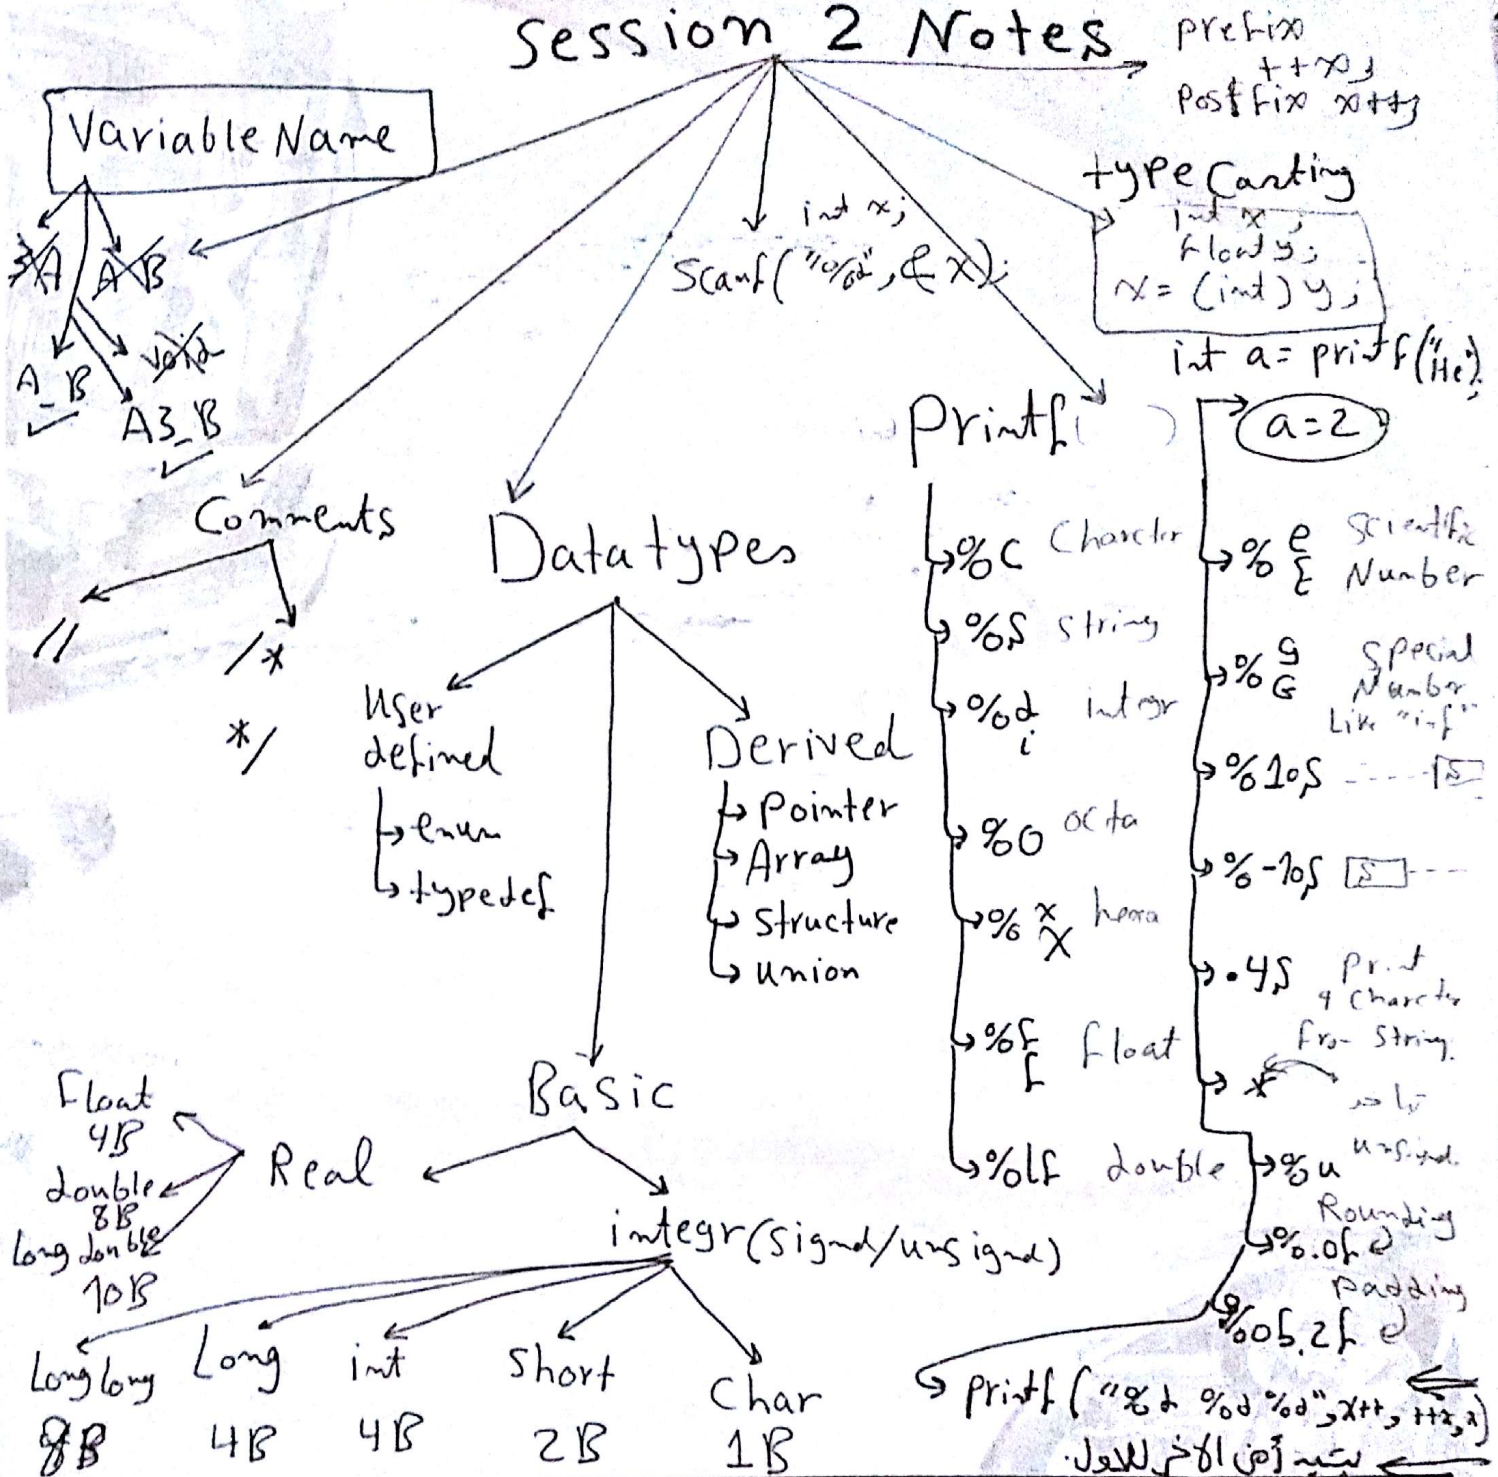 Session 2 Notes
prefix
++x;
Postfix x++;
Variable Name
3A
A B
A_B
void
A3_B
int x;
Scanf("%d", & x);
type Casting
int x;
float y;
x = (int) y;
int a = printf("He");
a=2
Comments
//
/*
*/
Data types
User
defined
enum
typedef
Derived
Pointer
Array
Structure
union
Basic
Real
Float
4B
double
8B
Long double
10B
integr (Signd/unsignd)
Long long
8B
Long
4B
int
4B
Short
2B
Char
1B
Printf( )
%c Charcter
%s string
%d integr
i
%o octa
%x hexa
X
%f float
%lf double
%e Scientific
E Number
%g Special
G Number
Like "inf"
%10s
%-10s
.4s Print
4 Charcter
from String.
*
%u unsignd.
Rounding
%.0f
Padding
printf("%d %d %d", x++, ++x, x)
من الآخر للأول.